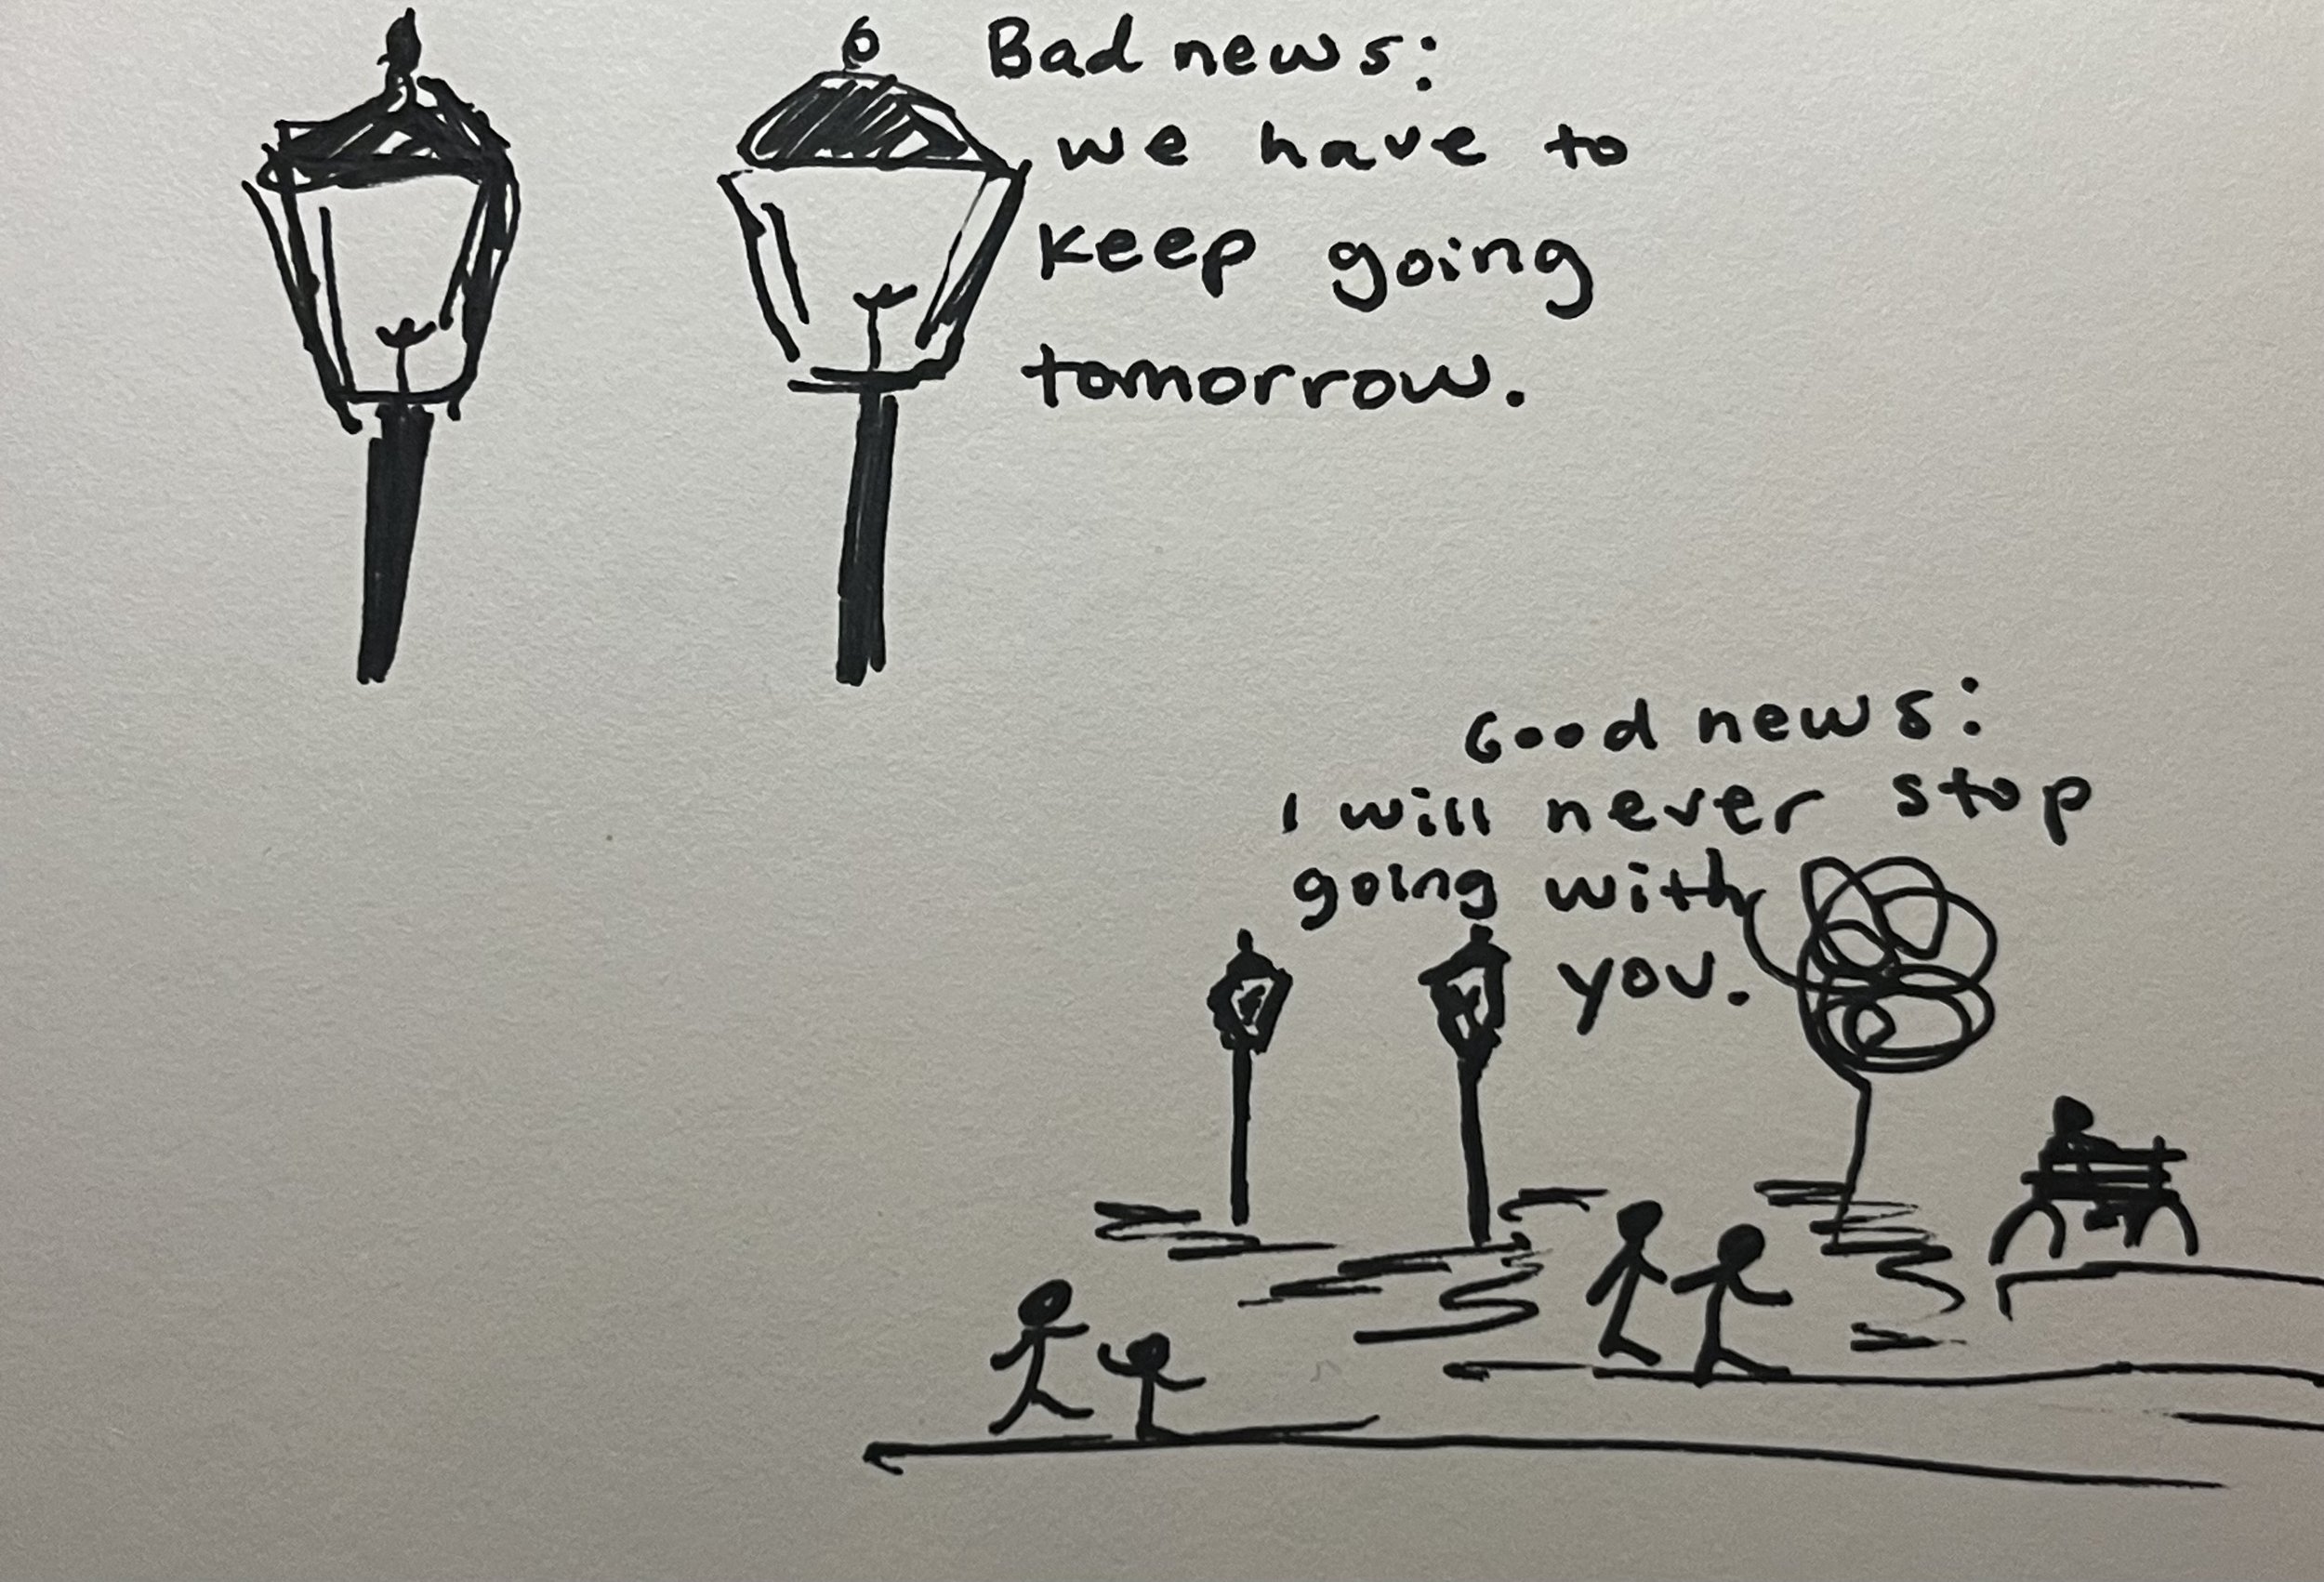 Bad news:
we have to
keep going
tomorrow.
Good news:
I will never stop
going with
you.